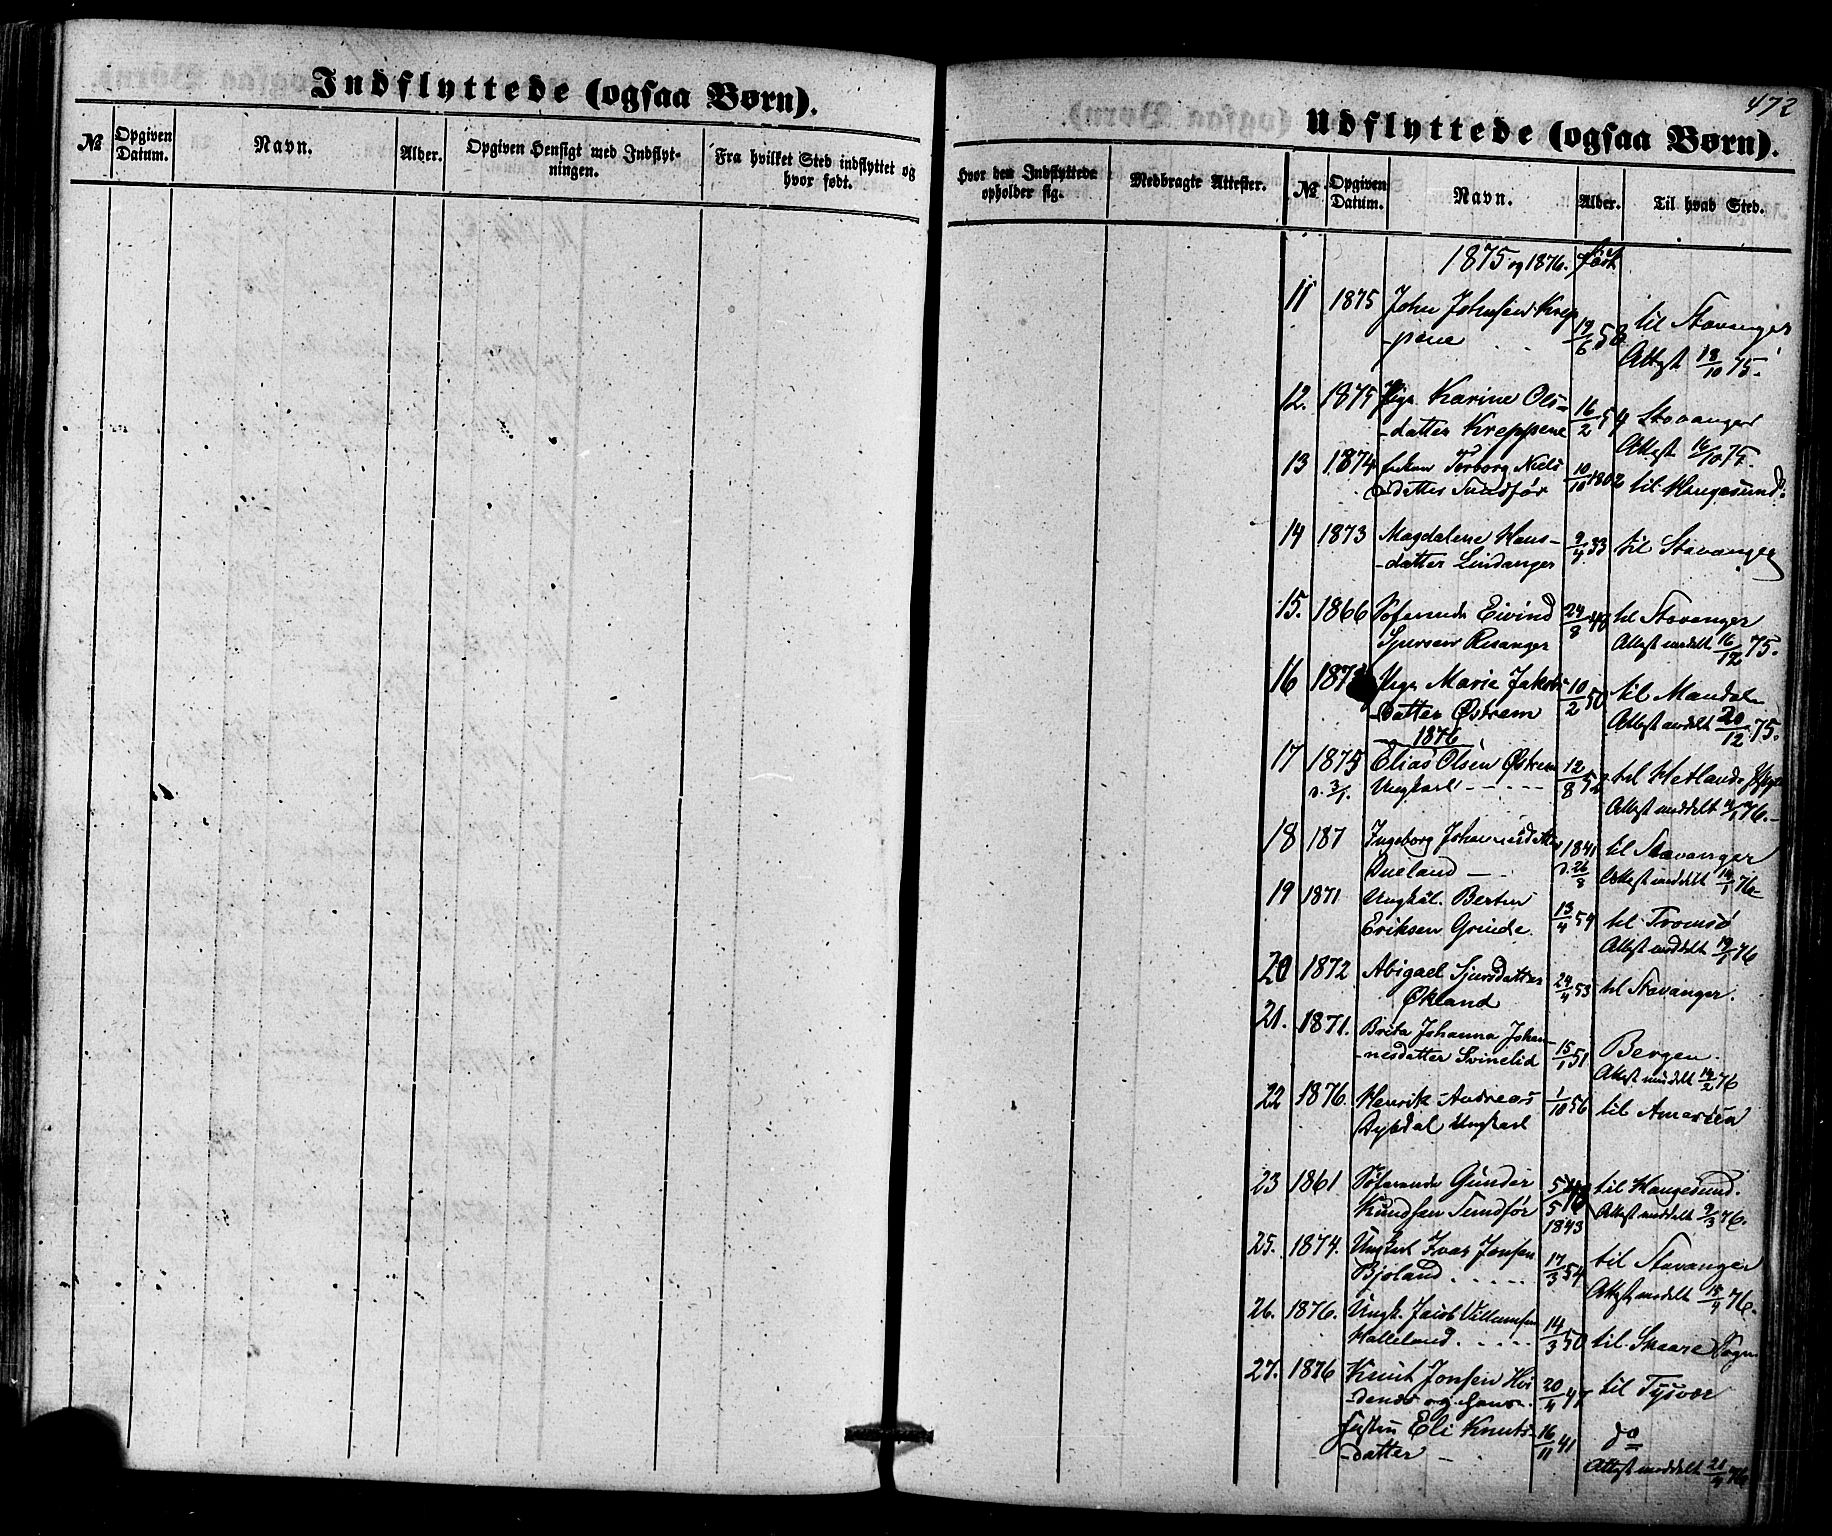 Indflyttede (ogsaa Børn).
№
Opgiven Datum.
Navn.
Alder.
Opgiven Hensigt med Indflyt-
ningen.
Fra hvilket Sted indflyttet og
hvor født.
472
Udflyttede (ogsaa Børn).
Hvor den Indflyttede
opholder sig.
Medbragte Attester.
№
Opgiven Datum.
Navn.
Alder.
Til hvad Sted.
1875 og 1876. født
11 1875 John Johnsen Krep
-pene 19/6 58 til Stavanger
Attest 18/10 75.
12. 1875 Pige Karine Ols-
-datter Kreppene 16/2 54 Stavanger
Attest 16/10 75.
13 1874 Enken Torborg Niels
-datter Sundfør 10/10 1802 til Haugesund.
14 1873 Magdalene Hans-
-datter Lindanger 9/4 33 til Stavanger
15. 1866 Søfarende Eivind 24/8 40 til Stavanger
Sjursen Risanger Attest meddelt 16/12 75.
16 187 Pige Marie Jakobs 10/2 50 til Mandal
-datter Østrem Attest meddelt 20/12 75.
1876
17 1875 Elias Olsen Østrem 12/8 til Hetlands
d. 3/1. Ungkarl - - - - - Attest meddelt 76.-
18 187 Ingeborg Johannesdatter 1841 til Stavanger
Dueland - d. 26/8 Attest meddelt 14/1 76
19 1871 Ungkal. Bertin 13/4 54 til Tromsø
Eriksen Grinde. Attest meddelt 19/1 76
20 1872 Abigael Sjursdatter 24/4 53 til Stavanger.
Økland
21. 1871. Brita Johanna Johan-
-nesdatter Svinelid 15/1 51 Bergen.
Attest meddelt 14/2 76
22 1876. Henrik Andreas 1/10 56 til Amerika
Ungkarl
23 1861 Søfarende Gunder til Haugesund.
Knudsen Sundfør 1843 Attest meddelt 9/3 76.
25. 1874. Ungkarl Ivar Jonsen 17/3 54 til Stavanger
Bjoland. . . . . Attest meddelt 18/4 76.
26. 1876. Ungk. Jacob Villumsen 14/3 50 til Skaare Sogn
Halleland. . . . .
27. 1876 Knut Jonsen Hvi 20/4 47 til Tysvær
-dende og Hans
Fæstin Eli Knuts- 16/11 41 do
-datter - Attest meddelt 21/4 76